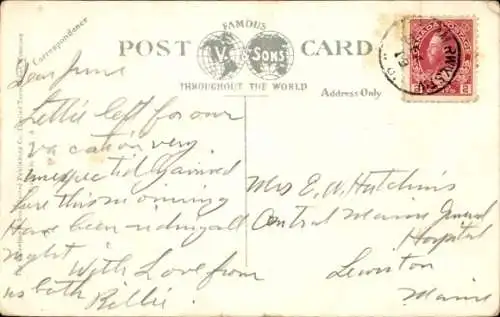 FAMOUS
POST CARD
V. & SONS
THROUGHOUT THE WORLD
Correspondence
Address Only
CANADA POSTAGE
2 2
Dear June
Lettie left for our
vacation very
unexpectedly arrived
here this morning
Have been riding all
night With Love from
us both Billie
Mrs E. A. Hutchins
Central Maine General
Hospital
Lewiston
Maine